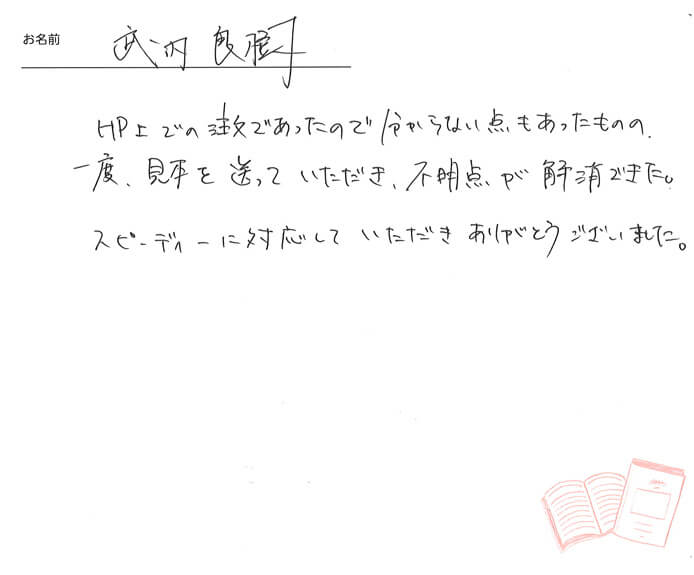 お名前 武内 良
HP上での注文であったので分からない点もあったものの、
一度、見本を送っていただき、不明点が解消できた。
スピーディーに対応していただきありがとうございました。